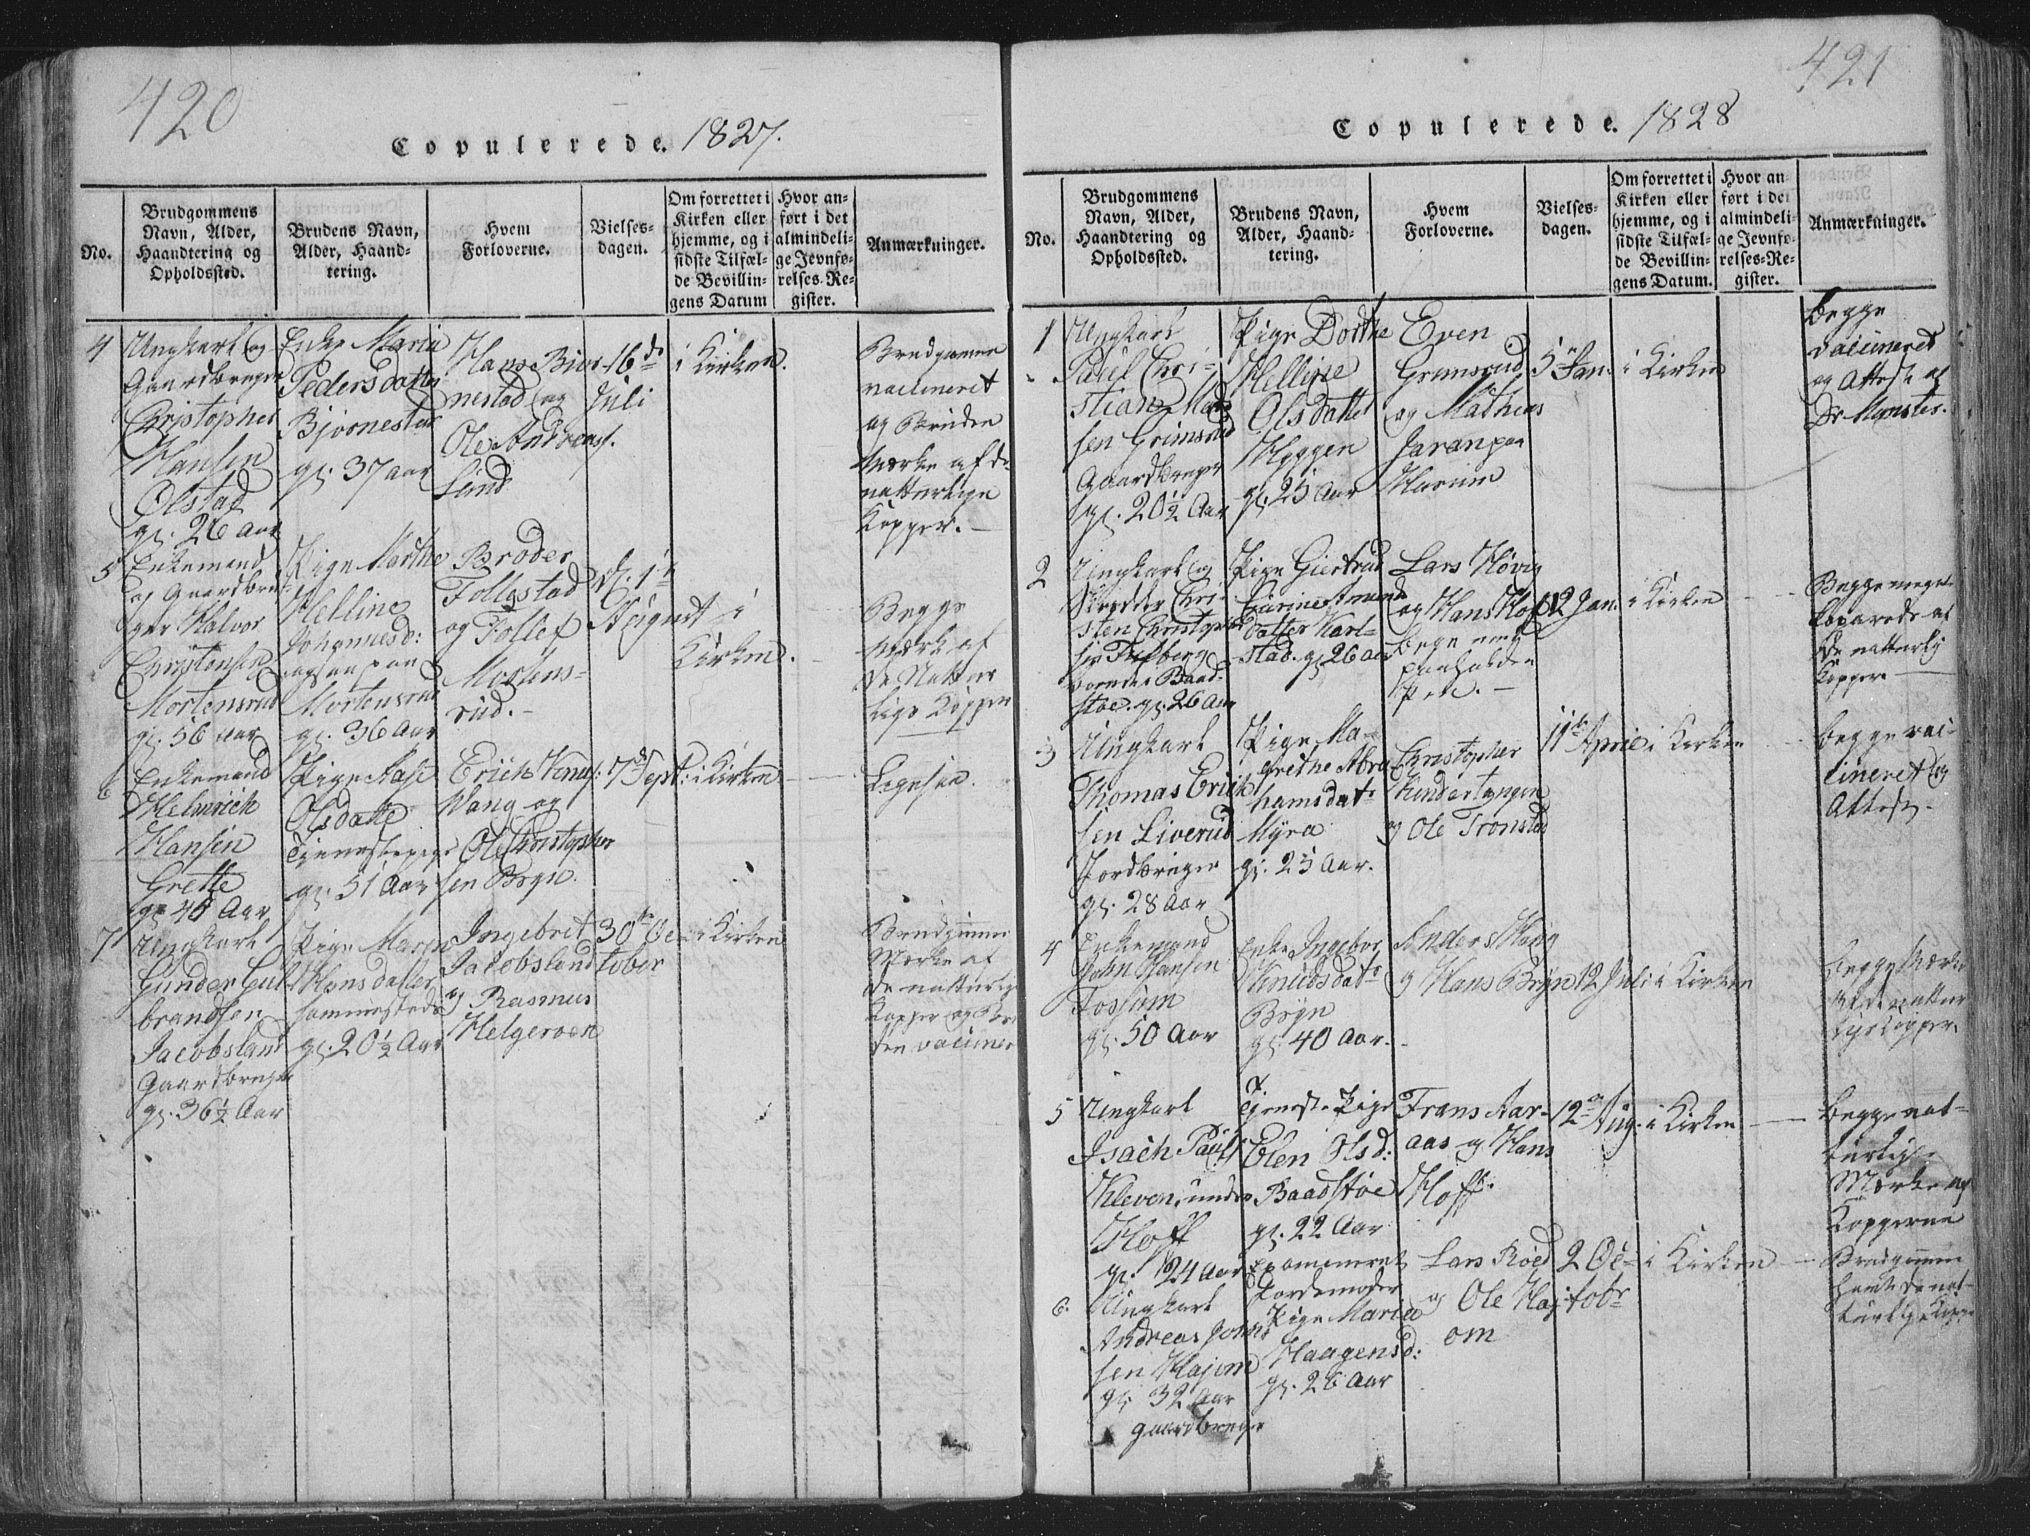 420
Copulerede. 1827.
No.
Brudgommens Navn, Alder, Haandtering og Opholdssted.
Brudens Navn, Alder, Haandtering.
Hvem Forloverne.
Vielsesdagen.
Om forrettet i Kirken eller hjemme, og i sidste Tilfælde Bevillingens Datum
Hvor anført i det almindelige Jevnførelses-Register.
Anmærkninger.
4
Ungkarl og
Gaardbruger
Christopher
Hansen
Olstad
gl. 26 Aar
Enke Maria
Pedersdatter
Bjørnestad
gl. 37 aar
Hans Biør-
nestad og
Ole Andreas.
Lind
16de
Juli
i Kirken.
Brudgommen
vaccineret
og Bruden
Mærke af de
naturlige
Kopper.
5
Enkemand
og Gaardbru-
ger Halvor
Christensen
Mortensrud
gl. 56 aar
Pige Marthe
Helline
Johannesd:
ogsaa paa
Mortensrud
gl. 36 Aar
Broder
Follestad
og Tollef
Mortens-
rud.
d. 1te
August
i
Kirken.
Begge
Mærke af
de Natur
lige Kopper
6
Enkemand
Helmrich
Hansen
Grette
gl. 45 Aar
Pige Aase
Olsdatter
Tjenestepige
gl. 51 Aar
Erich
Wang og
Ole Christopher
sen Bøgn.
7de Sept:
i Kirken
Ligesaa.
7
Ungkarl
Gunder Gul-
brandsen
Jacobsland
Gaardbruger
gl. 36½ Aar
Pige Maren
Hansdatter
sammesteds
gl. 20½ Aar
Ingebret
Jacobsland
og Rasmus
Helgeroen
30te Oc-
tober
i Kirken
Brudgommen
Mærke af
de naturlige
Kopper og Bru
den vaccineret
421
Copulerede. 1828
No.
Brudgommens Navn, Alder, Haandtering og Opholdssted.
Brudens Navn, Alder, Haandtering.
Hvem Forloverne.
Vielsesdagen.
Om forrettet i Kirken eller hjemme, og i sidste Tilfælde Bevillingens Datum.
Hvor anført i det almindelige Jevnførelses-Register.
Anmærkninger.
1
Ungkarl
Paul Chri-
stian Mad-
sen Grimsrud
Gaardbruger
gl. 20½ Aar
Pige Dorthe
Helline
Olsdatter
Hyggen
gl. 25 Aar
Even
Grimsrud
og Mathias
5te Jan.
i Kirken
Begge
vaccineret
og Attest af
Dr Münster.
2
Ungkarl og
Skredder Chri-
sten Christophe
sen
Baad-
støe. gl. 26 Aar
Pige Giertrud
Karinе Amund
datter Karl-
stad. gl. 26 aar
Lars Høvig
og Hans Hoff
12 Jan.
i Kirken
Begge
koparede af
de naturlig
Kopper
3
Ungkarl
Thomas Erich
sen Liverud
Jordbruger
gl. 28 Aar
Pige Ma-
grethe Abra
hamsdat.
Myra
gl. 25 Aar.
Christopher
og Ole Tronstad
11te April
i Kirken
Begge vac-
cineret og
Attest.
4
Enkemand
John Hansen
Fossum
gl. 50 Aar
Enke Ingebor
Knudsdatr
Bøgn
gl. 40 Aar.
Anders Haug
og Hans Bøgn
12 Juli
i Kirken
Begge Mærke
af de natur
lige Kopper.
5
Ungkarl
Isach Pauls
Kleven, under
Hoff
gl. 24 Aar
Tjeneste Pige
Elen Olsd:
Baadstøe
gl. 22 Aar
Examineret
Jordemoder
Frans Aar-
aas og Hans
Hoff.
12te Aug.
i Kirken
Begge nat-
turlige
Mærke af
Kopperne
6.
Ungkarl
Andreas John
sen Hajum
gl. 32 Aar
gaardbruger
Pige Maria
Haagensd:
gl. 26 Aar
Lars Røed
og Ole Haj
om
2 Oc-
tobr
i Kirken
Brudgommen
havde de nat
turlige Kopper